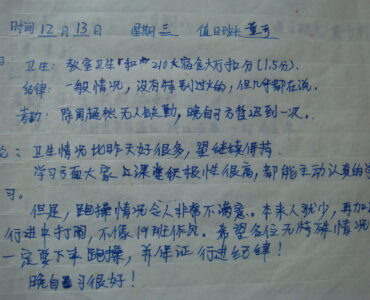 时间 12月13日 星期三 值日班长
卫生：教室卫生 和 210大宿舍大厅扣分(1.5分).
纪律：一般情况，没有特别过火的，但几乎都在说。
考勤：除周超然无人缺勤，晚自习方哲迟到一次。
卫生情况比昨天好很多，望继续保持.
学习方面大家上课积极性很高，都能主动认真的学
习。
但是，跑操情况令人非常不满意。本来人就少，再加
行进中打闹，不像19班作风。希望各位无特殊情况
一定要下来跑操，并保证行进纪律！
晚自习很好！